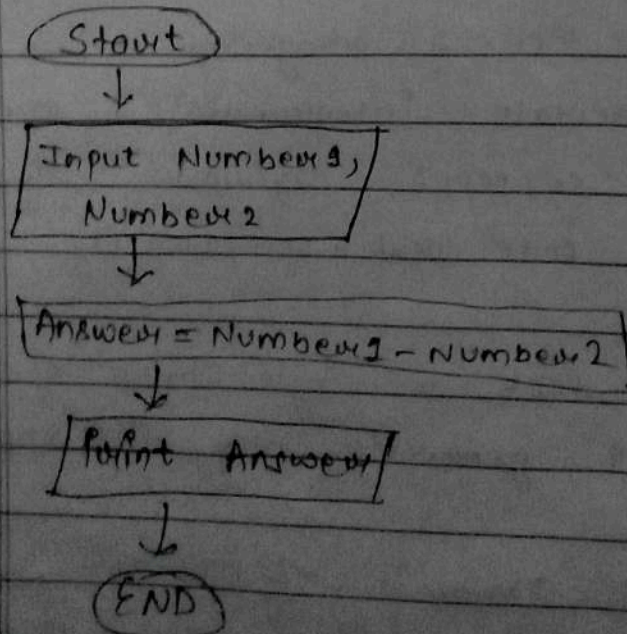 Start
Input Number1,
Number2
Answer = Number1 - Number2
Print Answer
END